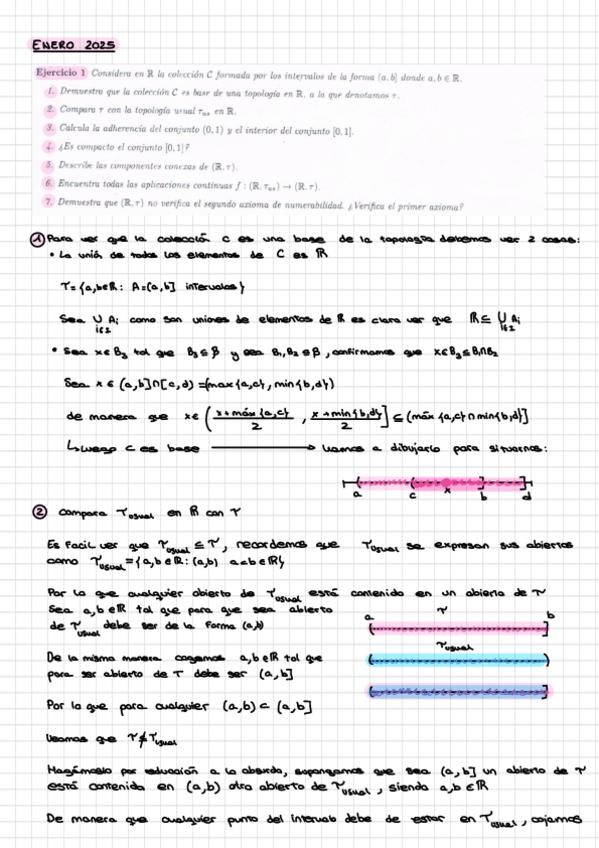 ENERO 2025
Ejercicio 1 Considera en ℝ la colección C formada por los intervalos de la forma (a, b] donde a, b ∈ ℝ.
1. Demuestra que la colección C es base de una topología en ℝ, a la que denotamos τ.
2. Compara τ con la topología usual τus en ℝ.
3. Calcula la adherencia del conjunto (0, 1) y el interior del conjunto [0, 1].
4. ¿Es compacto el conjunto [0, 1]?
5. Describe las componentes conexas de (ℝ, τ).
6. Encuentra todas las aplicaciones continuas f : (ℝ, τus) → (ℝ, τ).
7. Demuestra que (ℝ, τ) no verifica el segundo axioma de numerabilidad. ¿Verifica el primer axioma?
① Para ver que la colección C es una base de la topología debemos ver 2 cosas:
• La unión de todos los elementos de C es ℝ
τ={a,b∈ℝ: A=(a,b] intervalos}
Sea ∪ Ai como son uniones de elementos de ℝ es claro ver que ℝ⊆ ∪ Ai
i∈I i∈I
• Sea x∈B3 tal que B3⊆β y sea B1,B2∈β, confirmamos que x∈B3⊆B1∩B2
Sea x ∈ (a,b]∩(c,d] =(max{a,c}, min{b,d})
de manera que x∈ ( x+máx{a,c} / 2 , x+min{b,d} / 2 ] ⊆ (máx{a,c}∩min{b,d}]
↳Luego C es base → Vamos a dibujarlo para situarnos:
a c x b d
② Compara τusual en ℝ con τ
Es facil ver que τusual ⊆ τ, recordemos que τusual se expresan sus abiertos
como τusual={a,b∈ℝ: (a,b) a<b∈ℝ}
Por lo que cualquier abierto de τusual está contenido en un abierto de τ
Sea a,b∈ℝ tal que para que sea abierto
de τusual debe ser de la forma (a,b)
a τ b
τusual
De la misma manera cogemos a,b∈ℝ tal que
para ser abierto de τ debe ser (a,b]
Por lo que para cualquier (a,b) ⊂ (a,b]
Veamos que τ⊄τusual
Hagámoslo por reducción a lo absurdo, supongamos que sea (a,b] un abierto de τ
está contenida en (a,b) otro abierto de τusual, siendo a,b∈ℝ
De manera que cualquier punto del intervalo debe de estar en τusual, cojamos